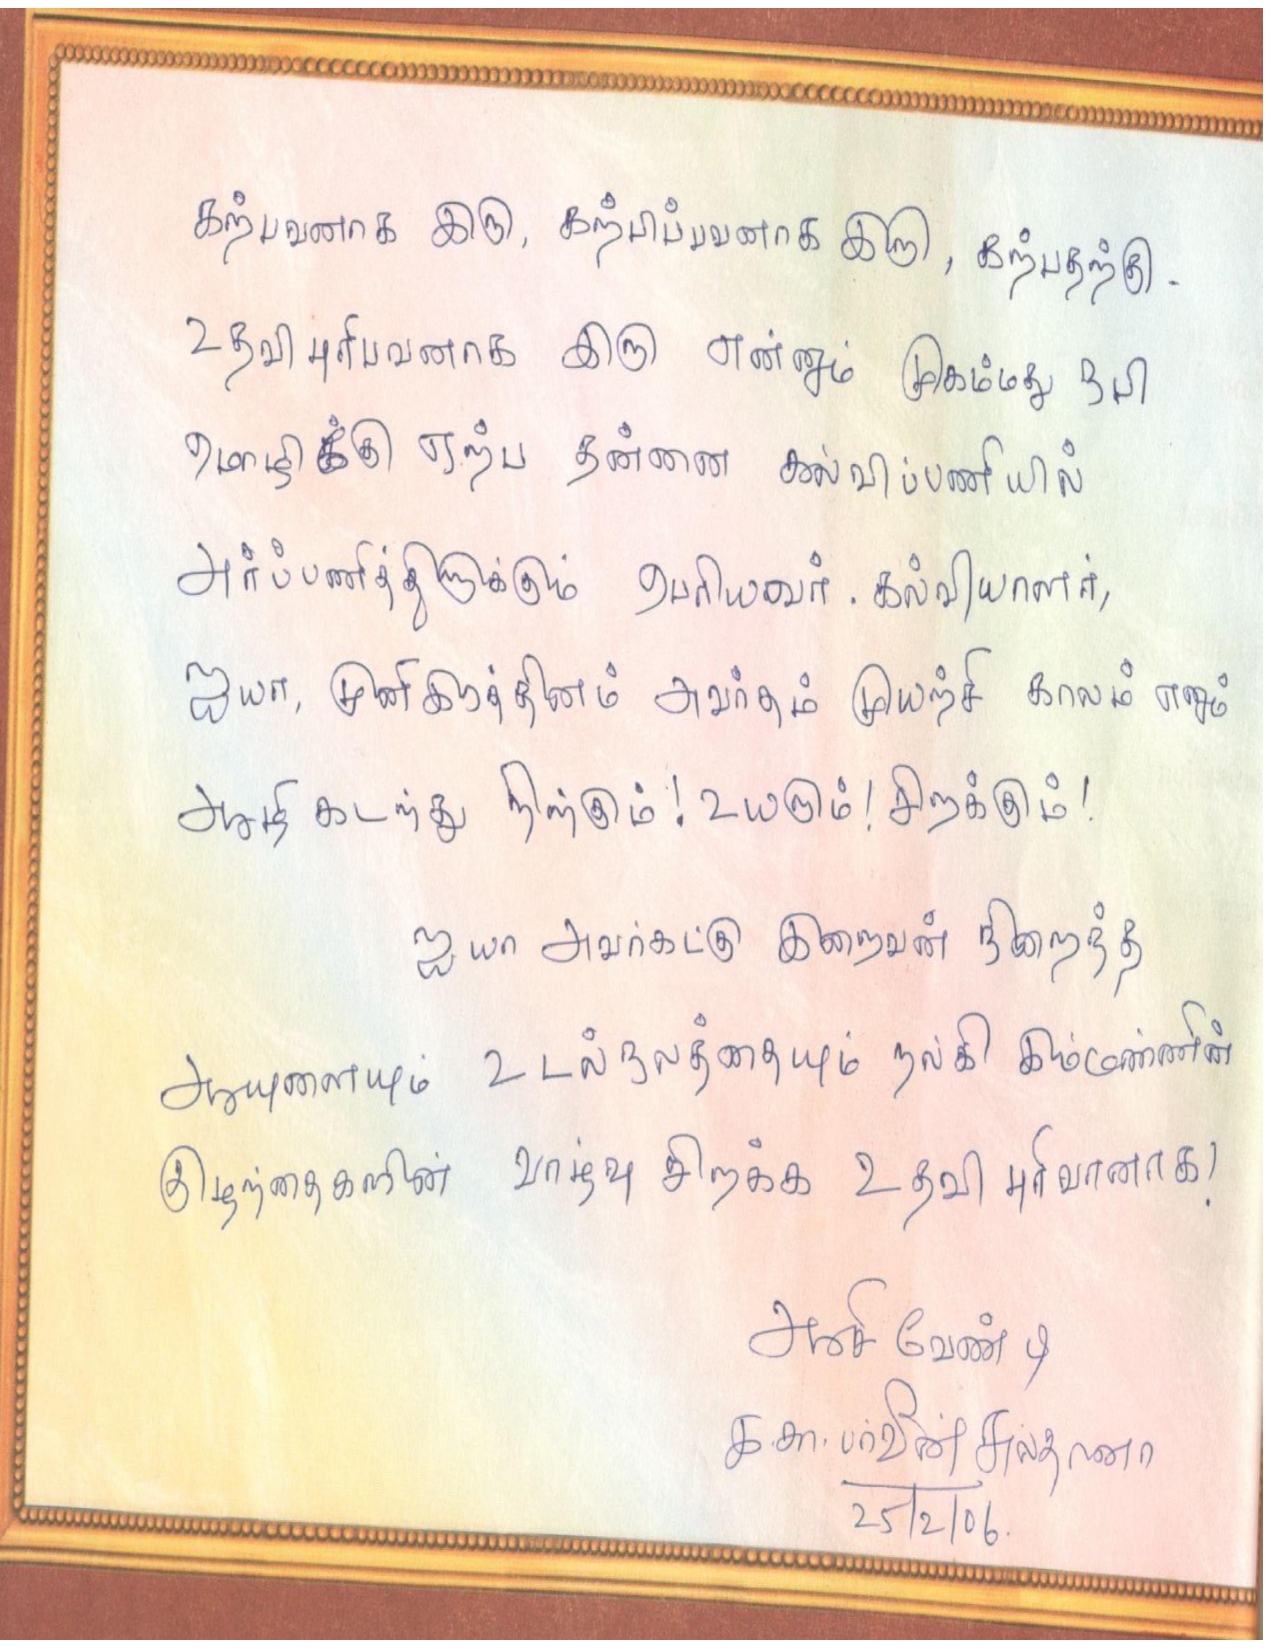 கற்பவனாக இரு, கற்பிப்பவனாக இரு, கற்பதற்கு
உதவி புரிபவனாக இரு என்னும் முகம்மது நபி
மொழிக்கு ஏற்ப தன்னை கல்விப்பணியில்
அர்ப்பணித்திருக்கும் பெரியவர். கல்வியாளர்,
ஐயா, முனிரத்தினம் அவர்தம் முயற்சி காலம் எனும்
ஆழி கடந்து நிற்கும்! உயரும்! சிறக்கும்!
ஐயா அவர்கட்கு இறைவன் நிறைந்த
ஆயுளையும் உடல்நலத்தையும் நல்கி இம்மண்ணின்
குழந்தைகளின் வாழ்வு சிறக்க உதவி புரிவானாக!
ஆசி வேண்டி
க.கா. பர்வீன் சுல்தானா
25/2/06.